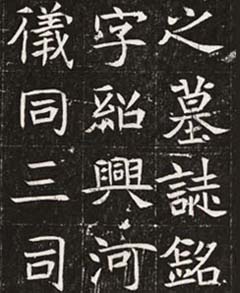 之墓誌銘
字紹興河
儀同三司